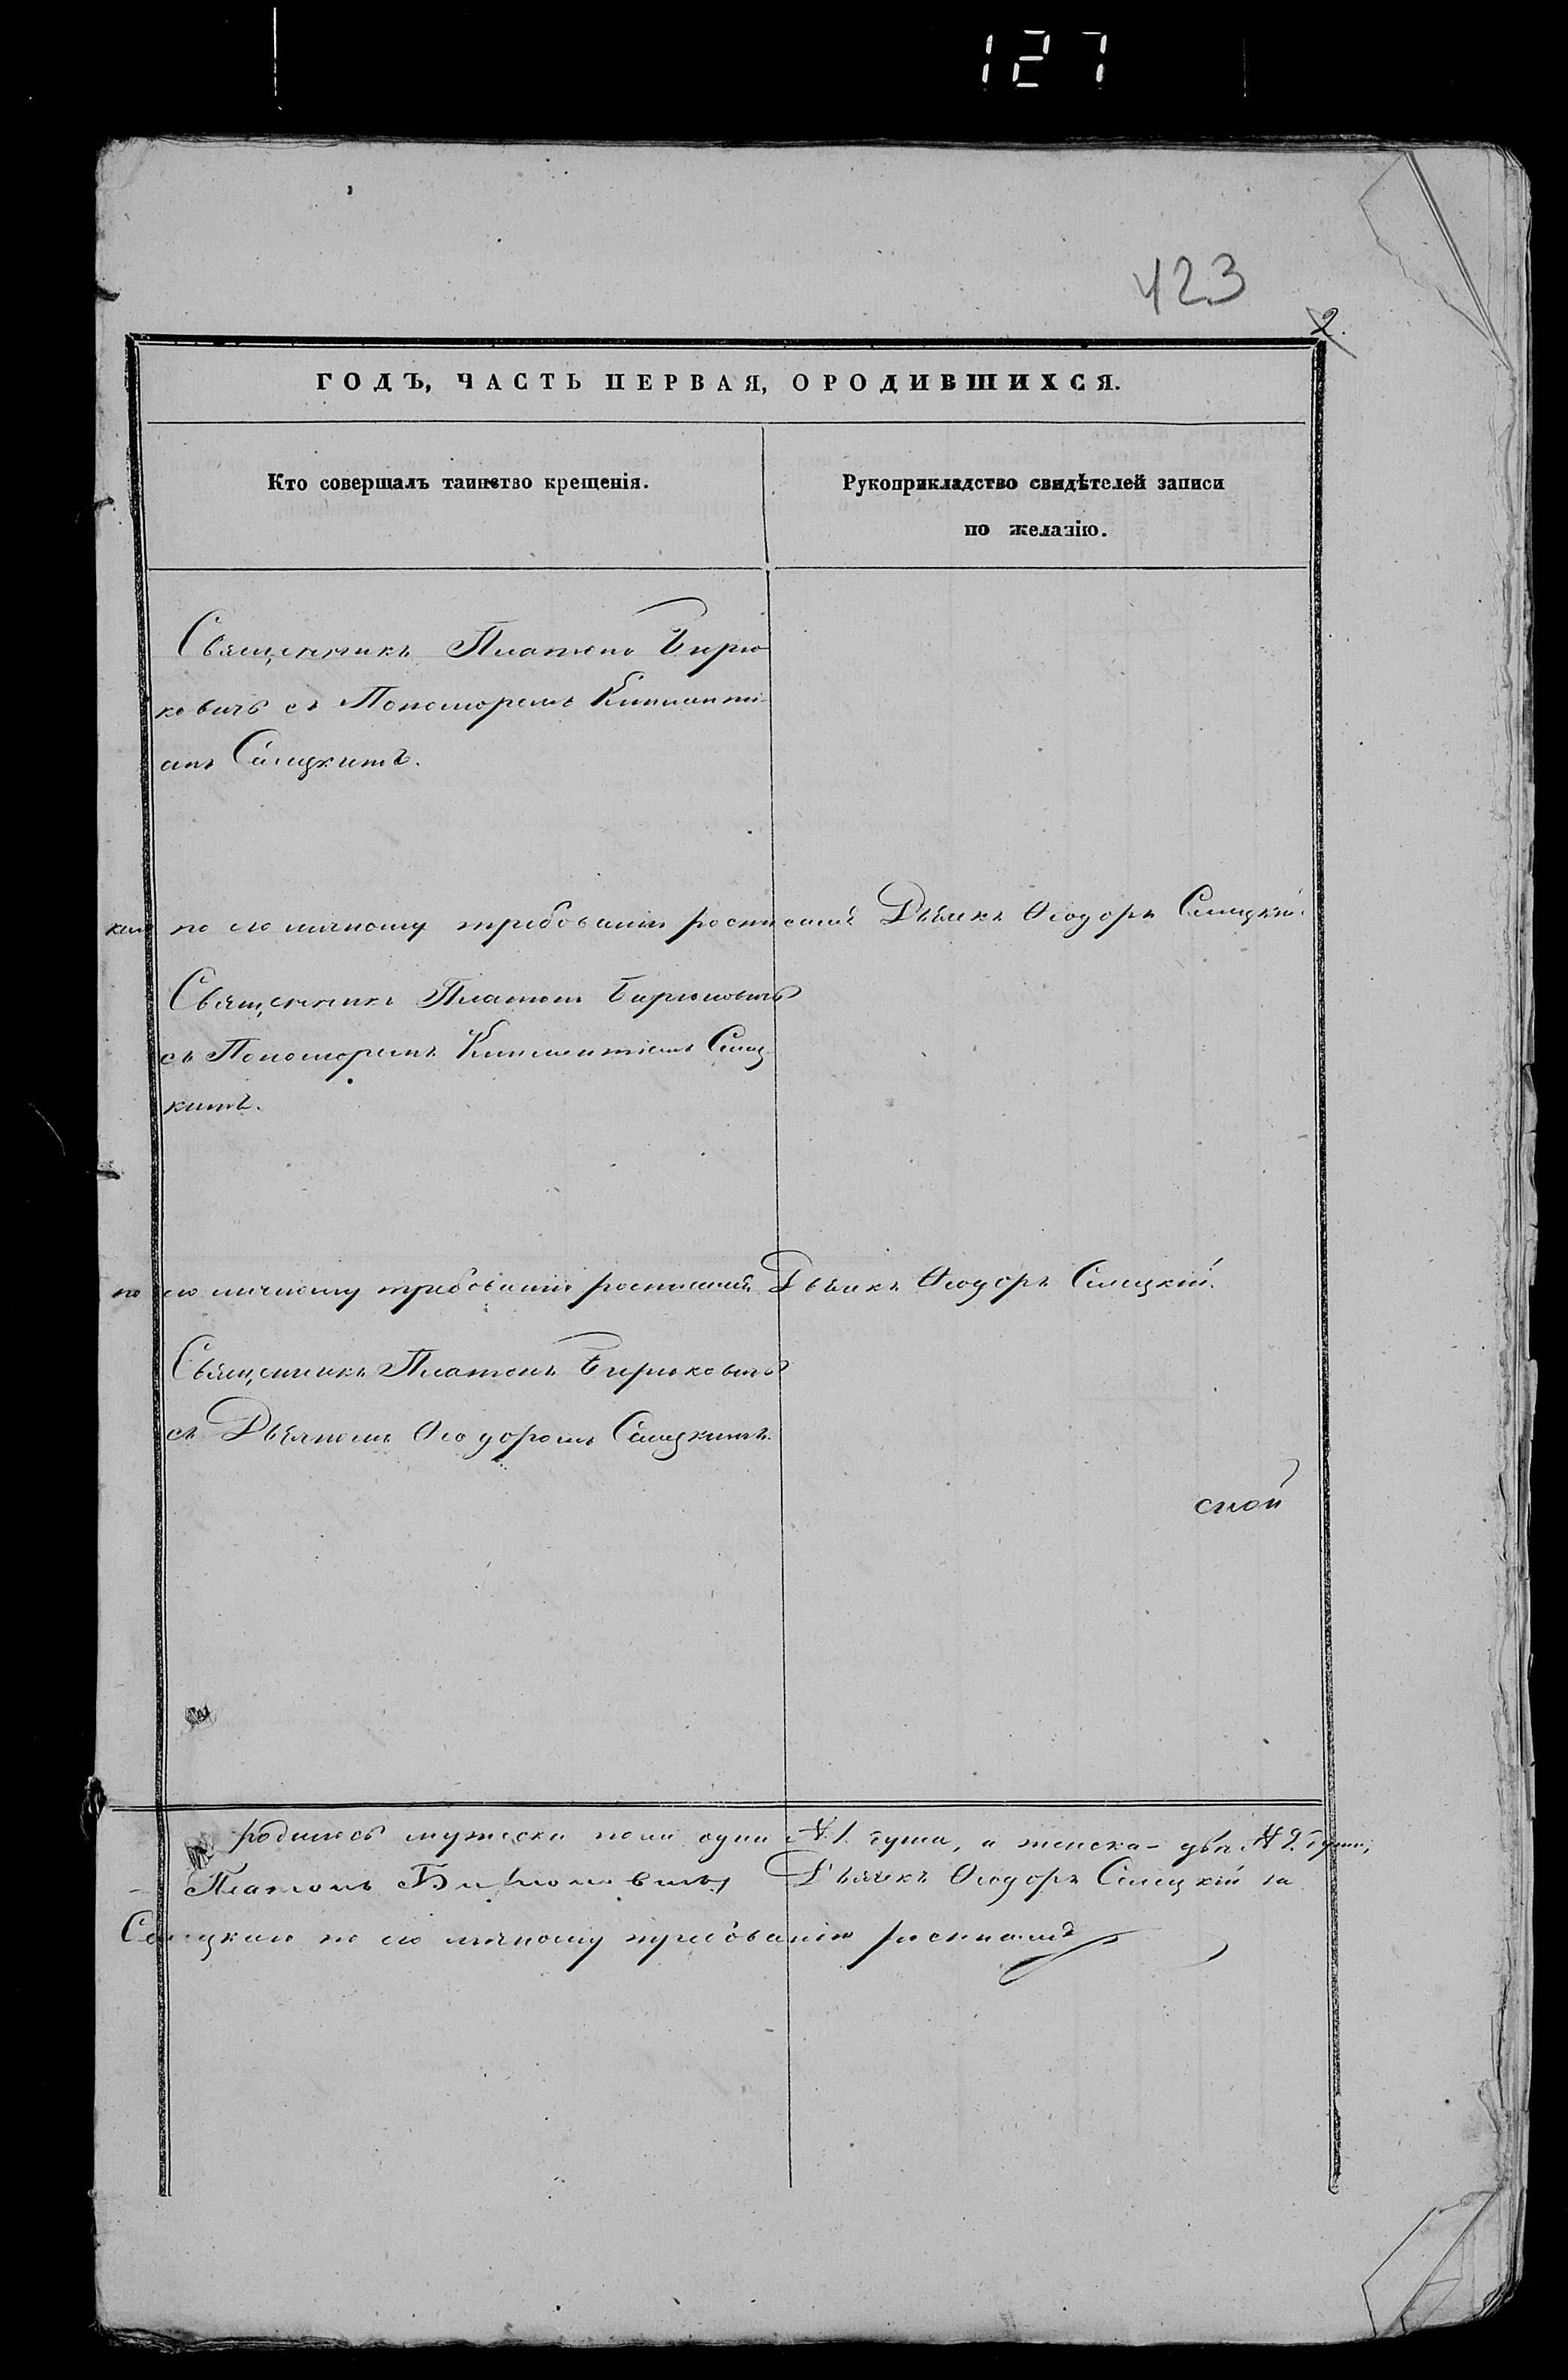 127
423
2.
ГОДЪ, ЧАСТЬ ПЕРВАЯ, ОРОДИВШИХСЯ.
Кто совершалъ таинство крещенія.
Рукоприкладство свидѣтелей записи
по желанію.
Священникъ Платонъ Бирю
ковичъ съ Пономоремъ Климентi
емъ Слицкимъ.
по его личному требованiю росписался Дьячкъ Ѳеодоръ Слицкiй.
Священникъ Платонъ Бирюковичъ
съ Пономоремъ Климентiемъ Слиц
кимъ.
по его личному требованiю росписался Дьячкъ Ѳеодоръ Слицкiй.
Священникъ Платонъ Бирюковичъ
съ Дьячкомъ Ѳеодоромъ Слицкимъ.
родилось мужеска пола одна №1. душа, а женска две № 2. души,
Платонъ Бирюковичъ Дьячкъ Ѳеодоръ Слицкiй за
Слицкаго по его личному требованiю росписался